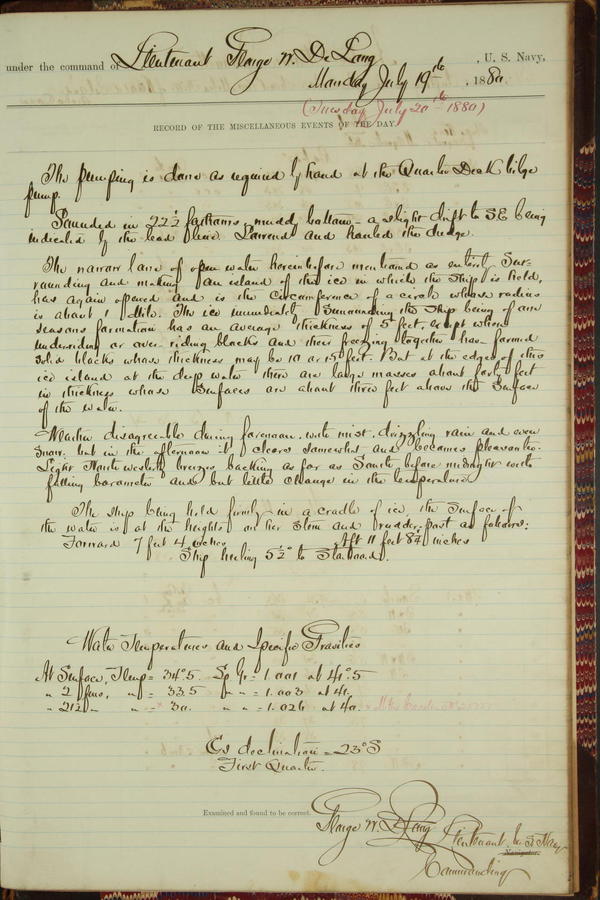 under the command of Lieutenant George W. De Long, U. S. Navy,
Monday July 19th, 1880
(Tuesday July 20th 1880)
RECORD OF THE MISCELLANEOUS EVENTS OF THE DAY.
The pumping is done as required by hand at the Quarter Deck bilge
pump.
Sounded in 22½ fathoms – muddy bottom – a slight drift to SE being
indicated by the lead line. Lowered and hauled the dredge.
The narrow lane of open water hereinbefore mentioned as entirely sur-
rounding and making an island of the ice in which the ship is held,
has again opened and is the circumference of a circle whose radius
is about 1 Mile. The ice immediately surrounding the ship being of one
seasons formation has an average thickness of 5 feet, except where
underriding or over riding blocks and their freezing together has formed
solid blocks whose thickness may be 10 or 15 feet. But at the edges of this
ice island at the deep water there are large masses about forty feet
in thickness whose surfaces are about three feet above the surface
of the water.
Weather disagreeable during forenoon, with mist, drizzling rain and even
snow, but in the afternoon it clears somewhat and becomes pleasanter.
Light North westerly breezes backing as far as South before midnight with
falling barometer and but little change in the temperature
The ship being held firmly in a cradle of ice, the surface of
the water is at the heights on her stem and rudder-post as follows:
Forward 7 feet 4 inches Aft 11 feet 8¾ inches
Ship heeling 5½° to Starboard.
Water Temperatures and Specific Gravities
At Surface, Temp = 34°.5. Sp Gr = 1.001 at 41°.5
" 2 fms, " = 33.5 " " = 1.003 at 41.
" 21½ " " = 30. " " = 1.026 at 40.
Cs declination = 23° S
First Quarter.
Examined and found to be correct.
George W. De Long Lieutenant, U. S. Navy
Navigator.
Commanding